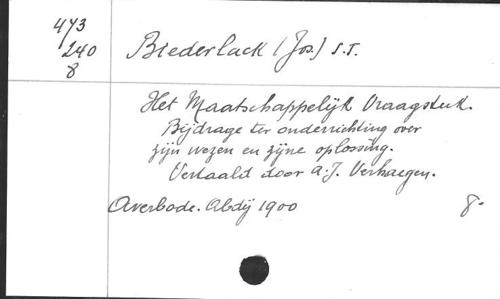 473
240
8
Biederlack (Jos.) S.J.
Het Maatschappelijk Vraagstuk.
Bijdrage ter onderrichting over
zijn wezen en zijne oplossing.
Vertaald door A. J. Verhaegen.
Averbode. Abdij 1900 8-